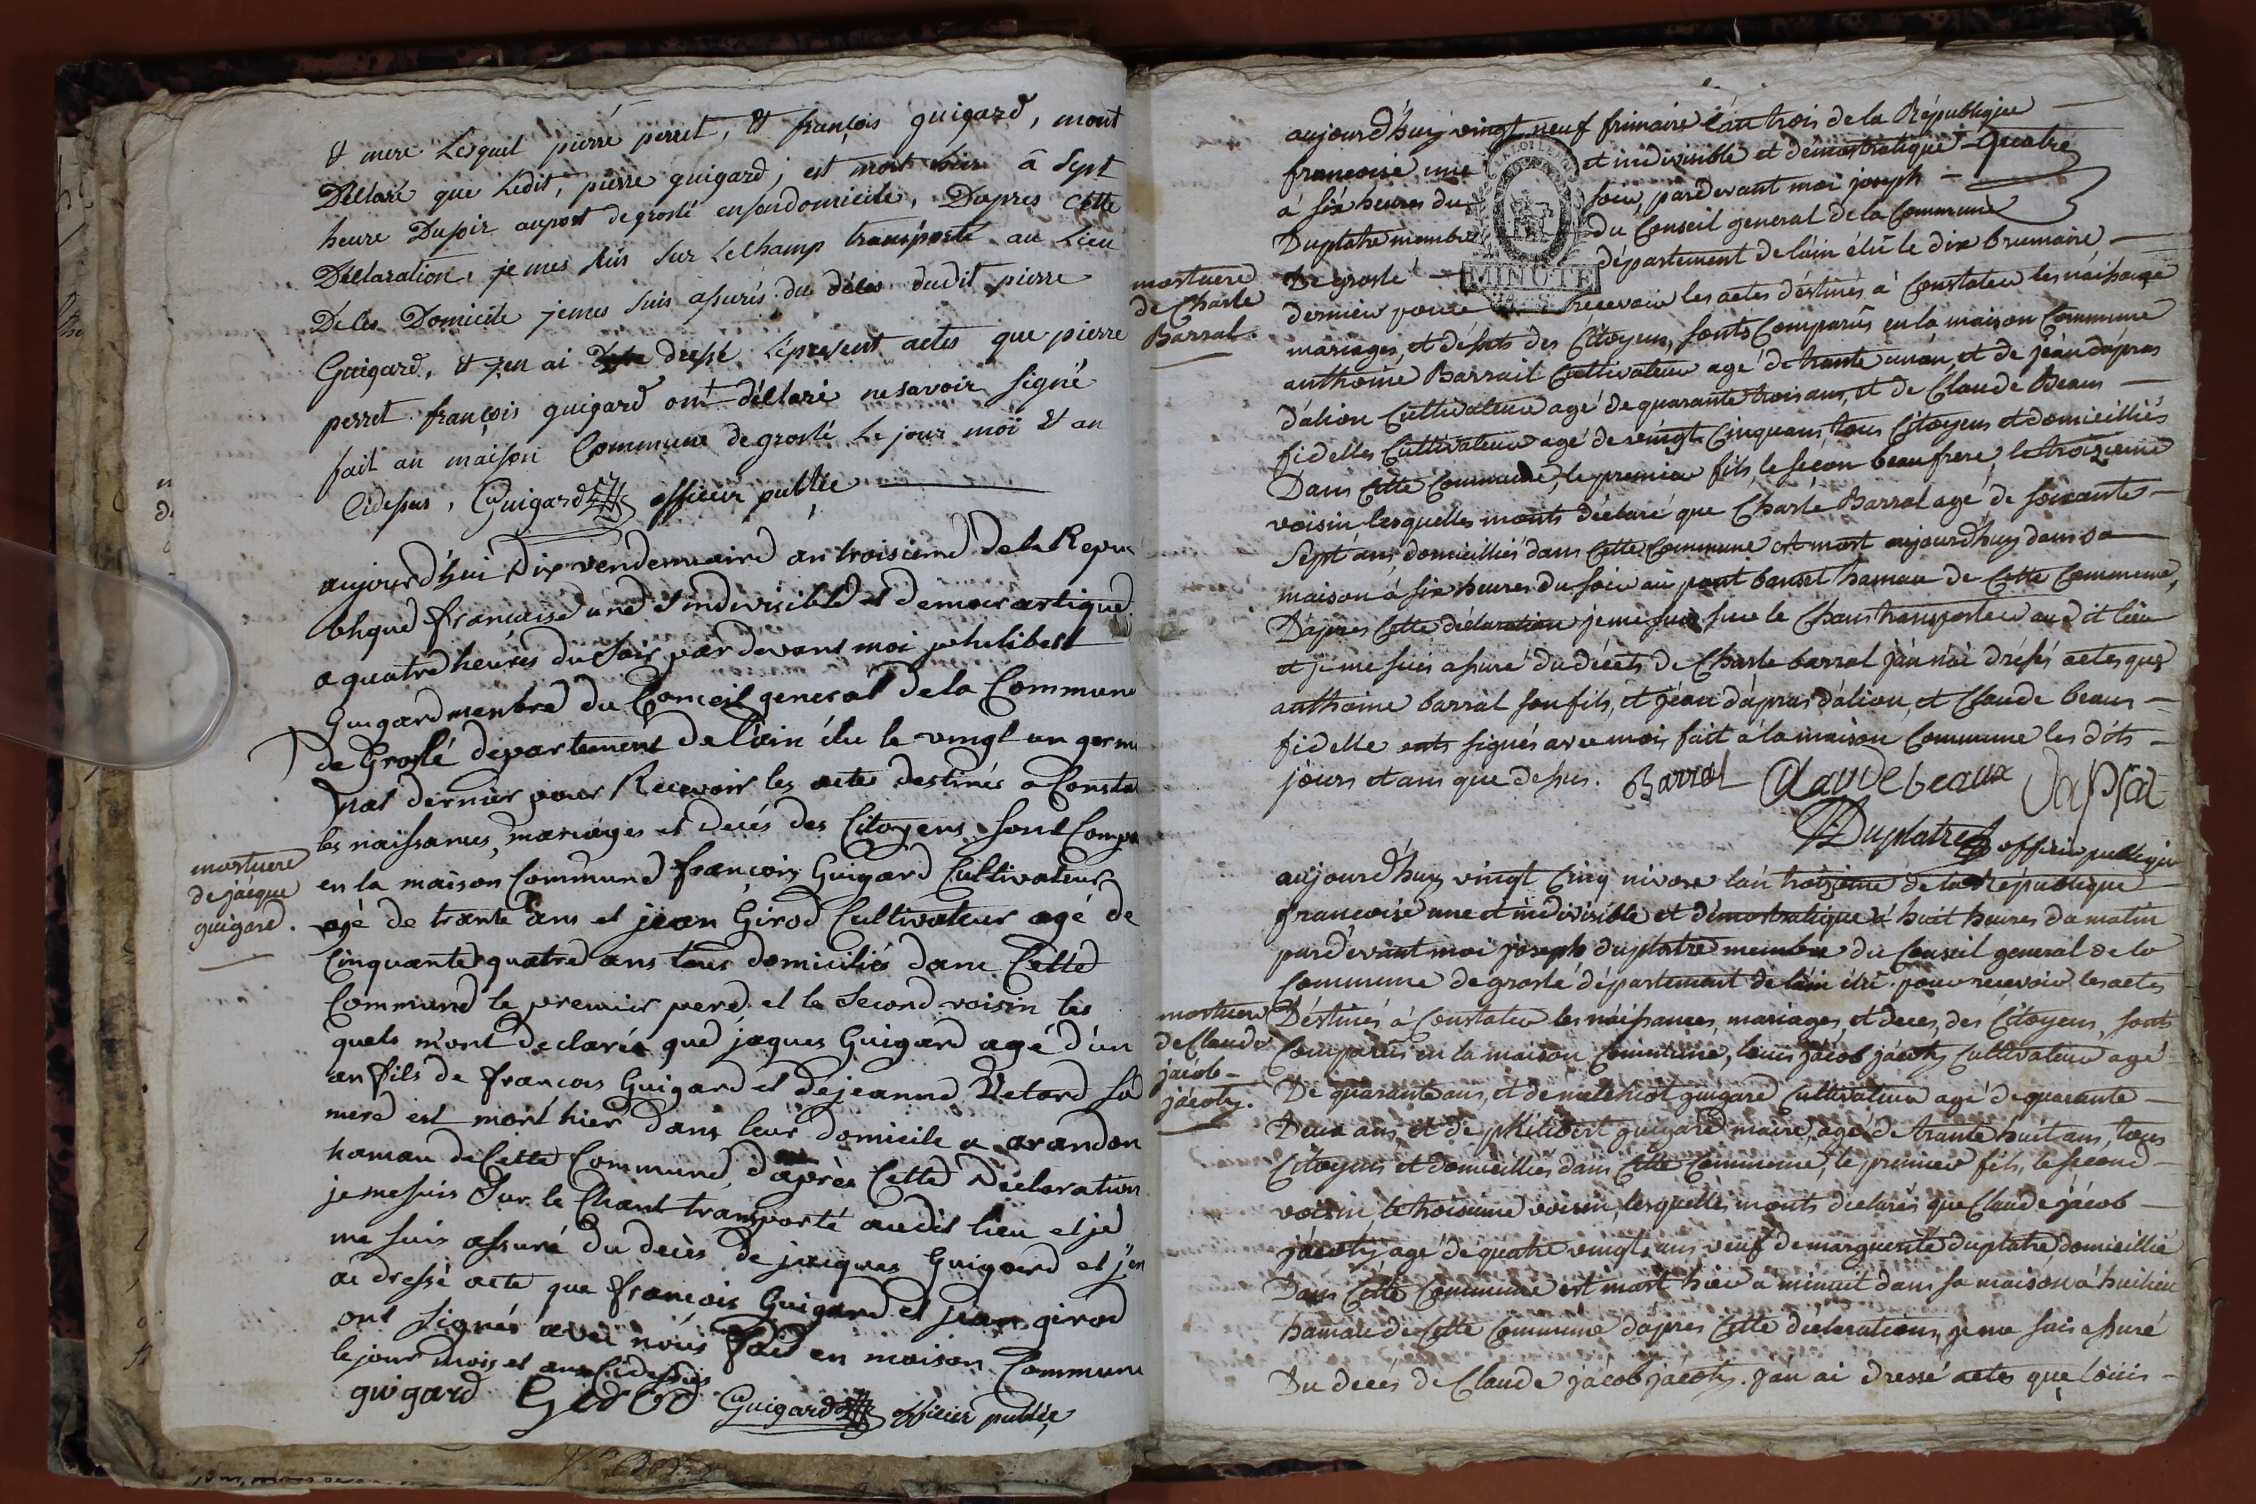 & mere Lesquel pierre perret, & françois guigard, mont
Déclaré que Ledit, pierre guigard, est mort hier â Sept
heure Dusoir auport de groslé ensondomicile, Dapres Cette
Déclaration, je mes suis sur Lechamp transporté au Lieu
Déles Domicile jemes suis assurés du déces dudit pierre
Guigard, & jen ai dressé Léprésent actes que pierre
perret françois guigard ont déclaré nesavoir signé
fait an maison Commune de groslé Le jour moi & an
Cidessus, Guigard officier public
aujourd'hui Dix vendemiaire an troisieme de la Repu
blique française une & indivisible et democratique
a quatre heures du soir par devant moi philibert
Guigard membre du Conseil general de la Commune
de Groslé département de l'ain élu le vingt un germi
nal dernier pour Recevoir les actes destinés a Consta
les naissances, mariages et decés des Citoyens sont Compa
en la maison Commune françois Guigard Cultivateur
agé de trante ans et jean Girod Cultivateur agé de
Cinquante quatre ans tous domiciliés dans Cette
Commune le premier pere et le Second voisin les
quels m'ont declarés que jaques Guigard agé d'un
an fils de françois Guigard et de jeanne Vetard sa
mere est mort hier dans leur domicile a arandon
hamau de Cette Commune, d'après Cette Déclaration
je me suis Sur le Chant transporté audit lieu et je
me suis assuré du decès de jacques Guigard et j'en
ai dressé acte que françois Guigard et jean girod
ont signés avec nous Fait en maison Commune
le jour mois et an Cidessus
guigard Girod Guigard officier public
mortuere
de jacque
guigard.
aujourd'huy vingt neuf frimaire l'an trois de la République
francoise une et indivisible et démocratique Quatre
à six heures du soir, pardevant moi joseph
Duplatre membre du Conseil general de la Commune
De groslé département de l'ain élü le dix brumaire
dernier pour recevoir les actes déstinés à Constater les naissance
mariages, et décets des Citoyens, sonts Comparûs en la maison Commune
anthoine Barrail Cultivateur agé de trante un an, et de jean dapras
dalion Cultivateur agé de quarante trois ans, et de Claude Beaux
fidelles Cultivateur agé de veingt Cinquans, tous Citoyens et domicilliés
Dans Cette Commune, le premier fils, le secon beau frere, le troizieme
voisin lesquelles monts déclaré que Charle Barral agé de soixante
Sept ans, domicilliés dans Cette Commune est mort aujourd'huy dans sa
maison à six heures du soir au pont bancet hamau de Cette Commune,
D'apres Cette déclaration je me suis sur le Chans transporter au dit lieu
et je me suis assuré du décets de Charle barral j'an n'ai dréssé actes que
anthoine barral son fils, et jean dapras dalion, et Claude beaux
fidelle onts signés avec moi, fait à la maison Commune les dits
jours et ans que dessus. Barral Claude beaux
Duplatre officier publique
mortuere
de Charle
Barral.
aujourd'huy vingt Cinq nivose lan troizieme de la République
francoise une et indivisible et démocratique à huit heures du matin
pard'evant moi joseph duplatre membre du Conseil general de la
Commune de groslé département de l'ain élü pour recevoir les actes
Déstinés à Constater les naissances, mariages, et deces, des Citoyens, sonts
Comparûs en la maison Commune, louis jâcob jâcoty Cultivateur agé
De quarante ans, et de melchiot guigard Cultivateur agé de quarante
Deux ans, et de philibert guigard maire, agé de trante huit ans, tous
Citoyens et domicilliés dans Cette Commune, le premier fils, le second
voisin, le troisieme voisin, lesquelles monts déclarés que Claude jâcob
jâcoty, agé de quatre vingt, ans veuf de marguerite duplatre domicillié
Dans Cette Commune est mort hier à minuit dans sa maison à huilieu
hamau de Cette Commune d'après Cette déclarations je me suis assuré
Du decés de Claude jâcob jâcoty. j'an ai dressé actes que louis
mortuere
de Claude
jâcob
jâcoty.
MINUTE